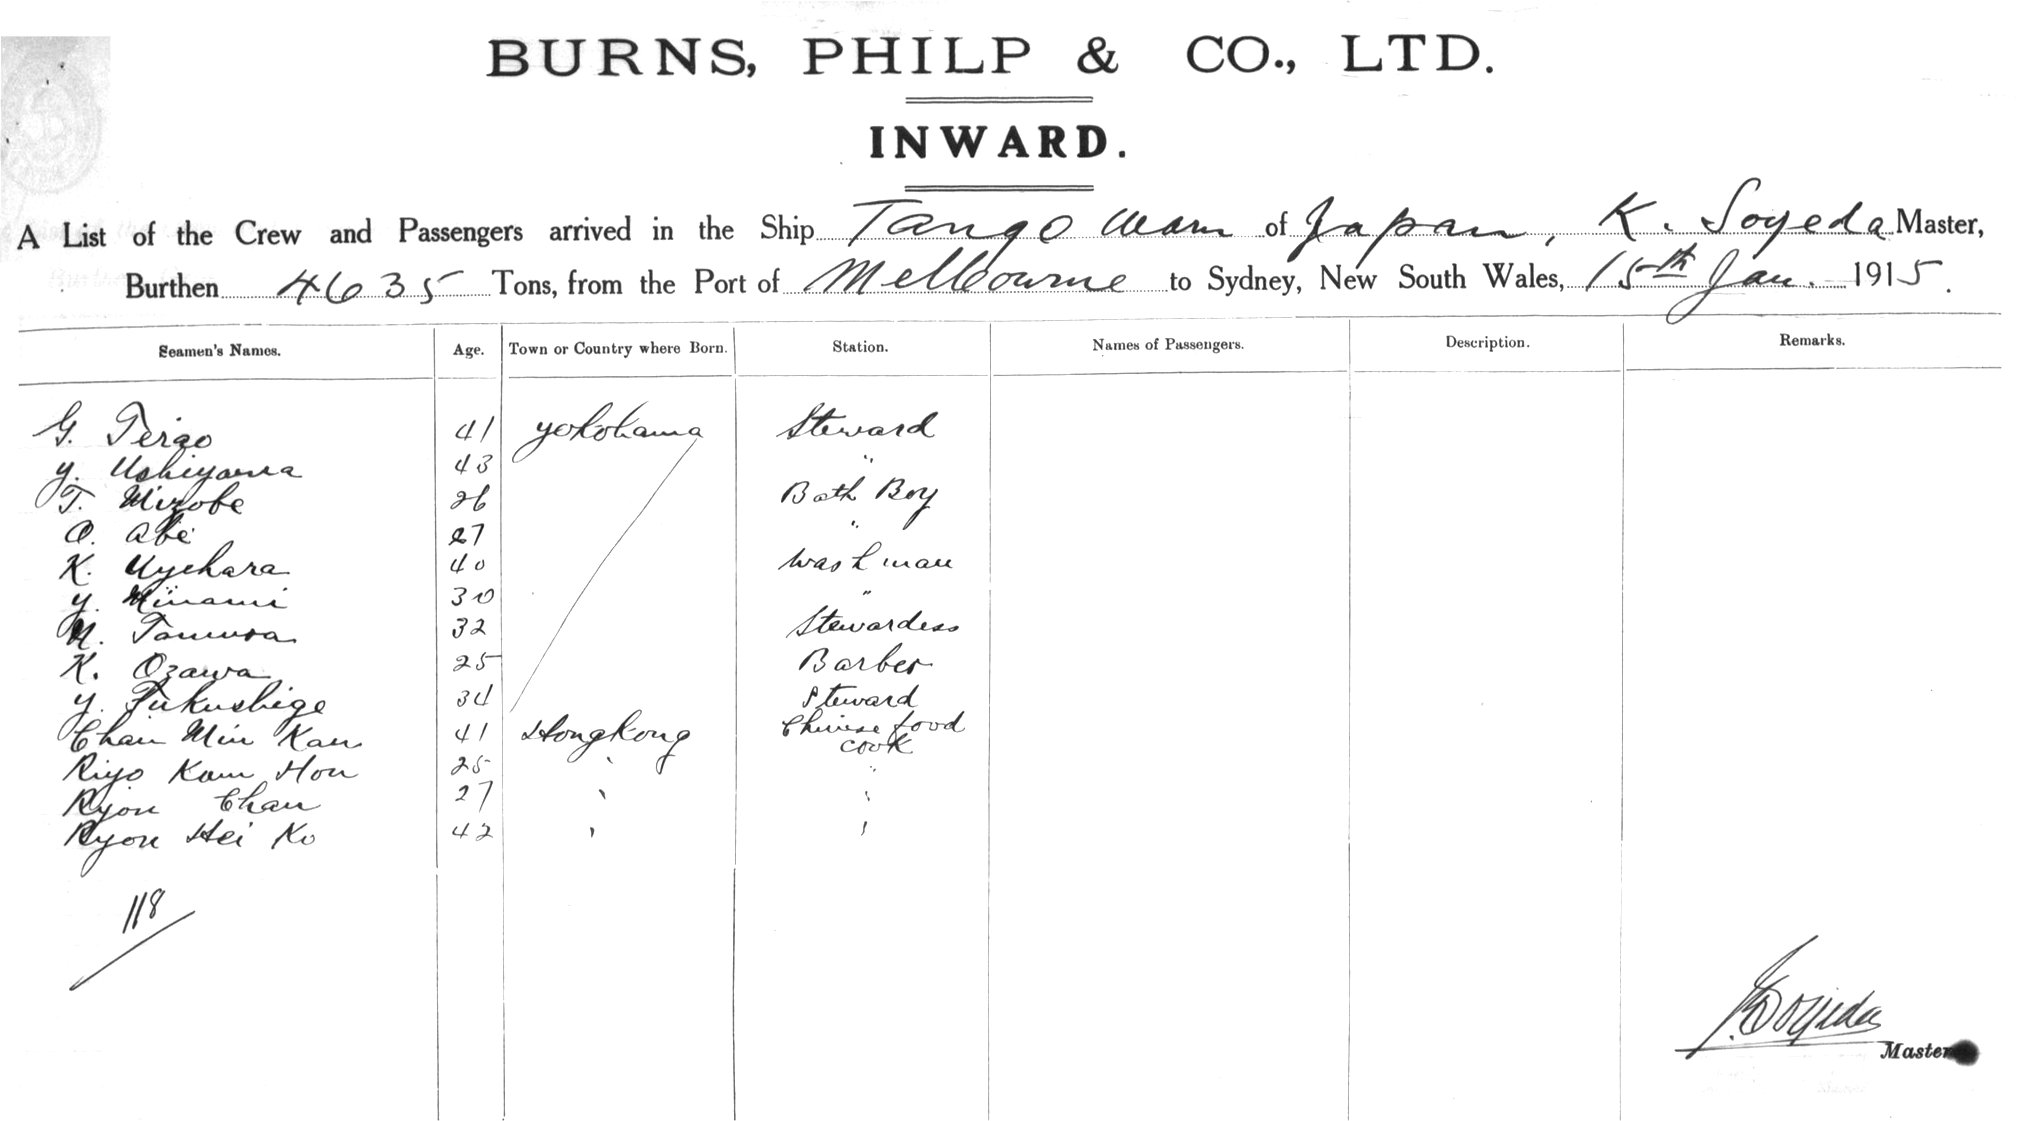 BURNS, PHILP & CO., LTD.
INWARD.
A List of the Crew and Passengers arrived in the Ship Tango Maru of Japan, K. Soyeda Master,
Burthen 4635 Tons, from the Port of Melbourne to Sydney, New South Wales, 15th Jan. 1915.
Seamen's Names. Age. Town or Country where Born. Station. Names of Passengers. Description. Remarks.
G. Terao 41 Yokohama Steward
Y. Ushiyama 43 "
T. Mizobe 26 Bath Boy
O. Abe 27 "
K. Uyehara 40 Wash man
Y. Minami 30 "
N. Tamura 32 Stewardess
K. Ozawa 25 Barber
Y. Fukushige 34 Steward
Chan Min Kan 41 Hongkong Chinese food
cook
Riyo Kam Hon 25 " "
Ryon Chan 27 " "
Ryon Hei Ko 42 " "
118
K. Soyeda
Master